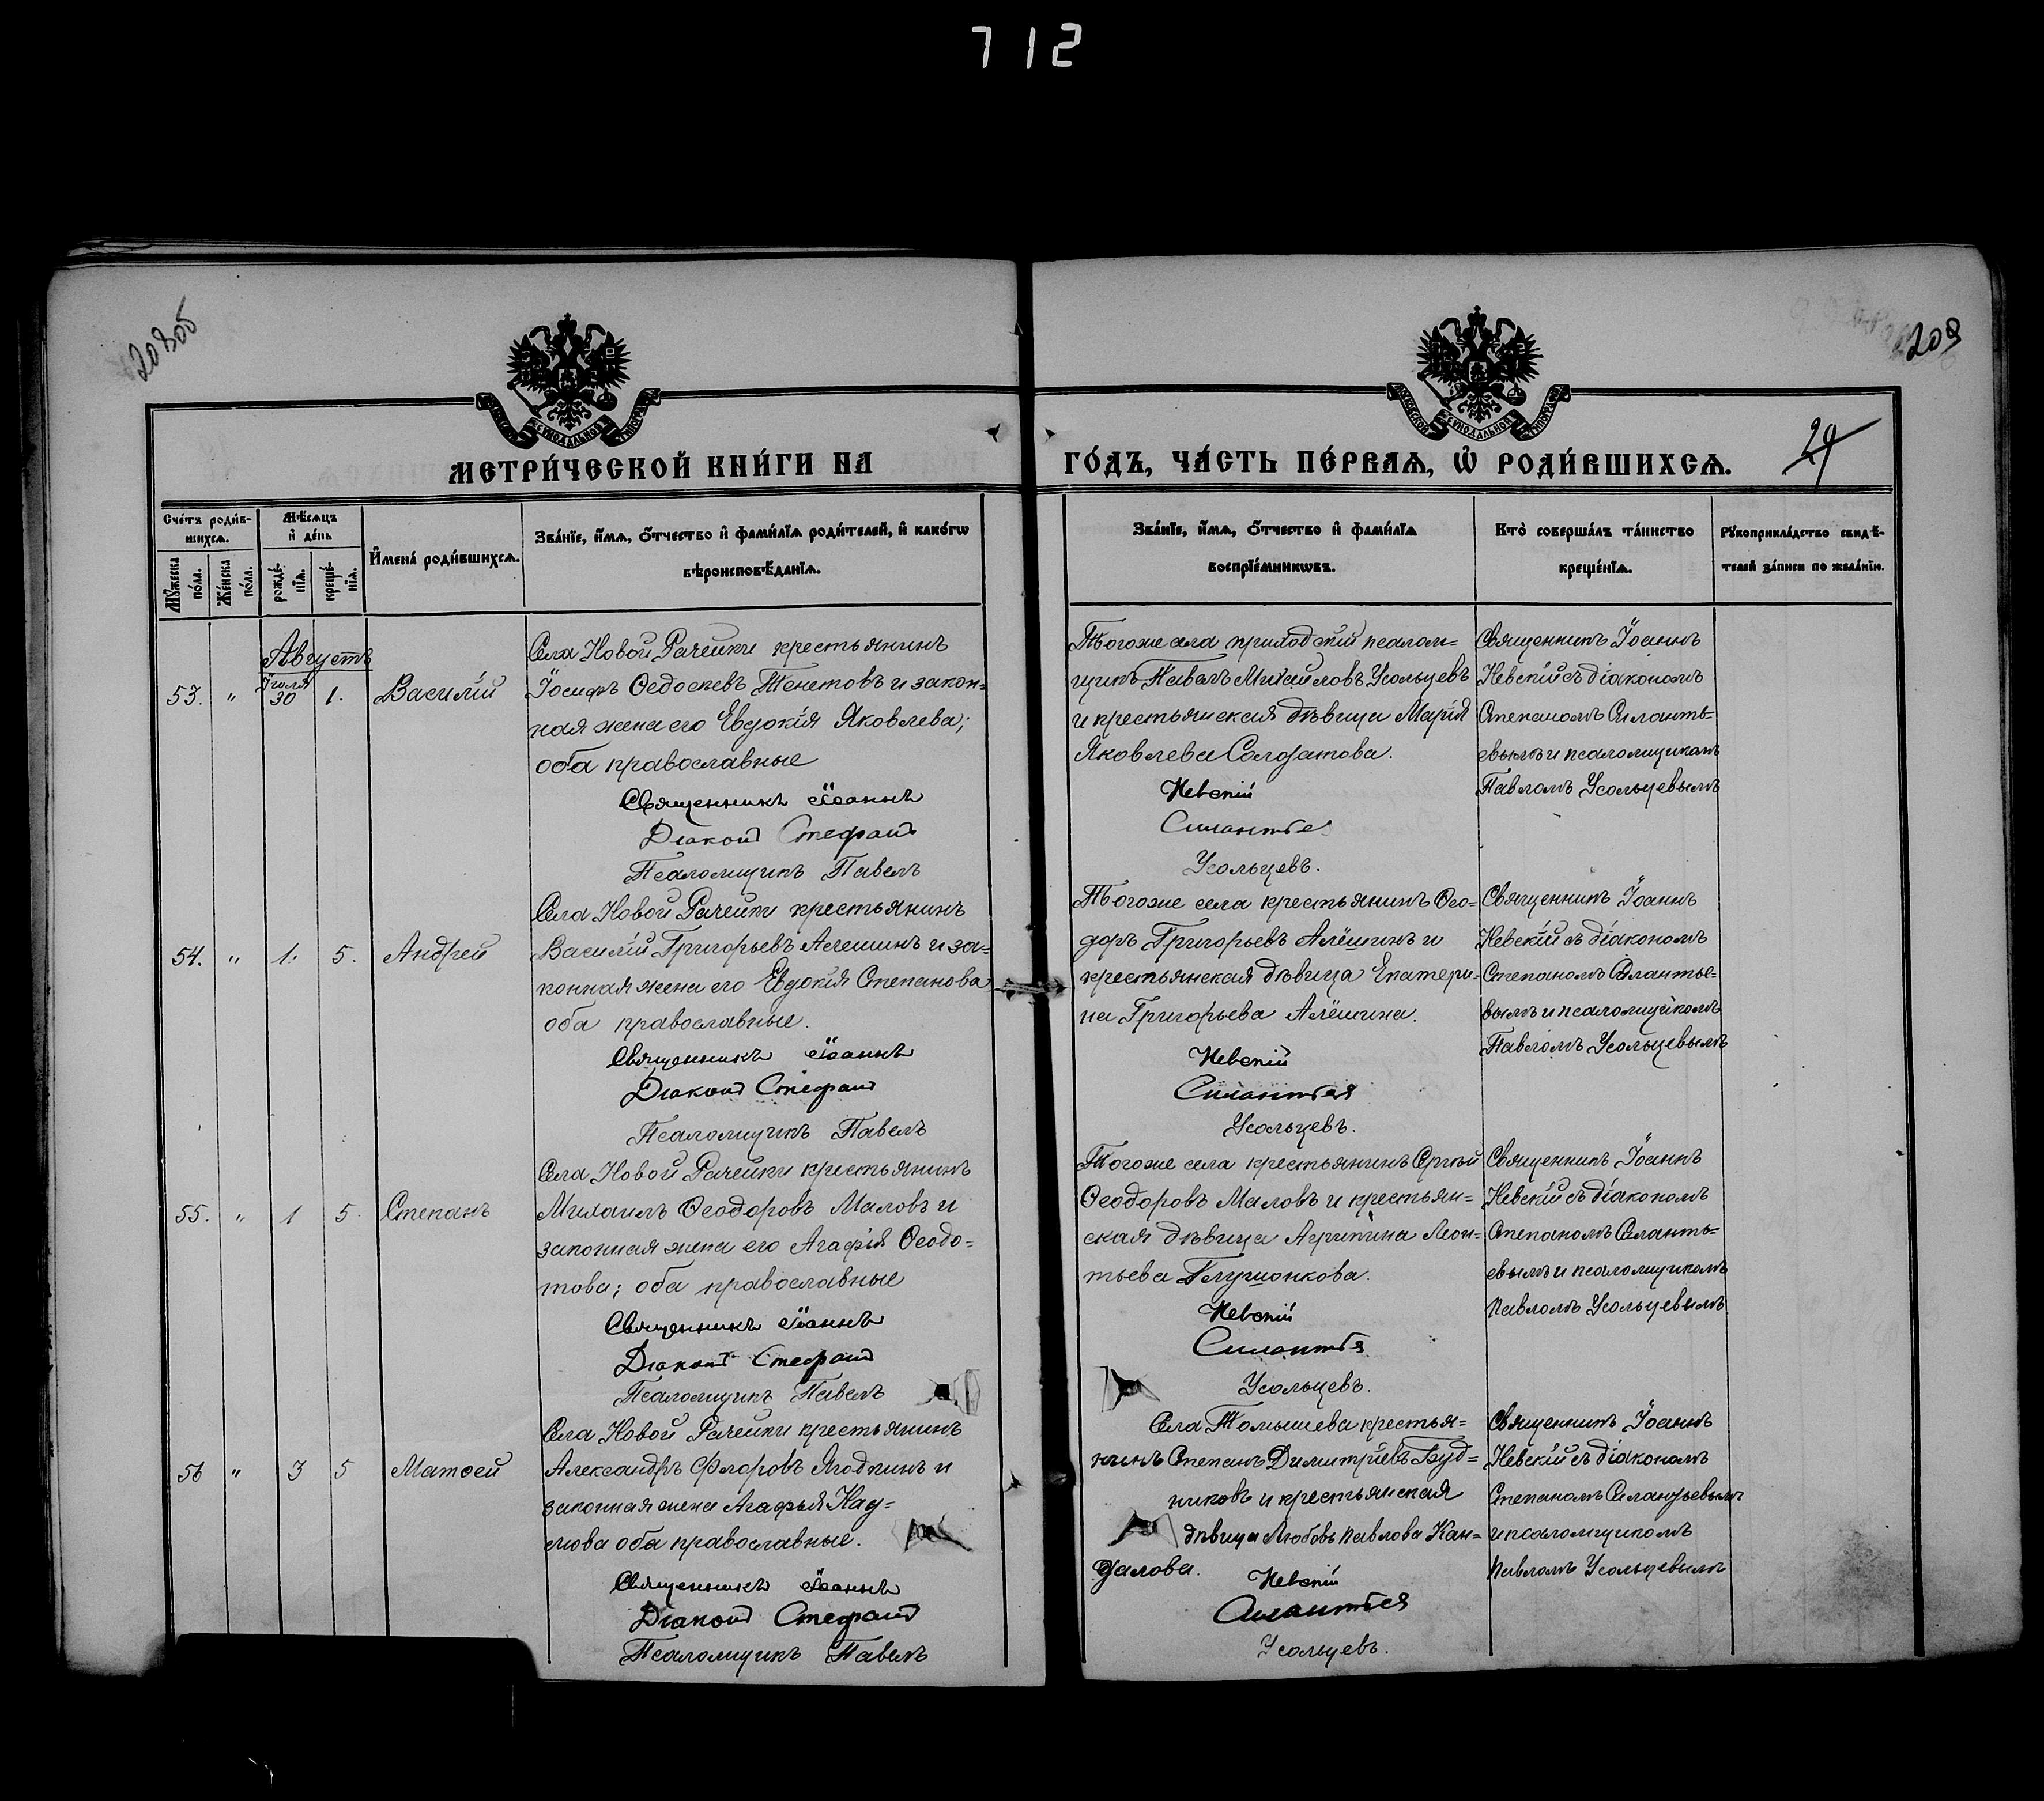 712
208об
209
29
МЕТРИ́ЧЕСКОЙ КНИ́ГИ НА
ГО́ДЪ, ЧА́СТЬ ПЕ́РВАѦ, Ѡ҆ РОДИ́ВШИХСѦ.
Сче́тъ роди́в-
шихсѧ.
Мѣ́сѧцъ
и҆ де́нь
Мꙋ́жеска
по́ла.
Же́нска
по́ла.
рожде́-
нїѧ.
креще́-
нїѧ.
И҆мена̀ роди́вшихсѧ.
Зва́нїе, и҆́мѧ, ѻ҆́тчество и҆ фами́лїѧ роди́телей, и҆ како́гѡ
вѣроисповѣ́данїѧ.
Зва́нїе, и҆́мѧ, ѻ҆́тчество и҆ фами́лїѧ
воспрїе́мникѡвъ.
Кто̀ соверша́лъ та́инство
креще́нїѧ.
Рꙋкоприкла́дство свидѣ́-
телей за́писи по жела́нїю.
Августъ
53. " Іюля 30 1. Василій
Села Новой Рачейки крестьянинъ
Іосифъ Ѳедосѣевъ Тенетовъ и закон=
ная жена его Евдокія Яковлева;
оба православные
Священникъ Іоаннъ
Діаконъ Стефанъ
Псаломщикъ Павелъ
Тогоже села приходскій псалом=
щикъ Павелъ Михайловъ Усольцевъ
и крестьянская дѣвица Марія
Яковлева Солдатова.
Невскій
Силантье
Усольцевъ.
Священникъ Іоаннъ
Невскій съ діакономъ
Степаномъ Силанть=
евымъ и псаломщикомъ
Павломъ Усольцевымъ
54. " 1. 5. Андрей
Села Новой Рачейки крестьянинъ
Василій Григорьевъ Алешинъ и за=
конная жена его Евдокія Степанова
оба православные.
Священникъ Іоаннъ
Діаконъ Стефанъ
Псаломщикъ Павелъ
Тогоже села крестьянинъ Ѳео=
доръ Григорьевъ Алёшинъ и
крестьянская дѣвица Екатери=
на Григорьева Алёшина.
Невскій
Силантье
Усольцевъ.
Священникъ Іоаннъ
Невскій съ діакономъ
Степаномъ Силантье=
вымъ и псаломщикомъ
Павломъ Усольцевымъ
55. " 1 5. Степанъ
Села Новой Рачейки крестьянинъ
Михаилъ Ѳеодоровъ Маловъ и
законная жена его Агафія Ѳеодо=
това; оба православные
Священникъ Іоаннъ
Діаконъ Стефанъ
Псаломщикъ Павелъ
Тогоже села крестьянинъ Сергѣй
Ѳеодоровъ Маловъ и крестьян=
ская дѣвица Агрипина Леон=
тьева Глушонкова.
Невскій
Силантье
Усольцевъ.
Священникъ Іоаннъ
Невскій съ діакономъ
Степаномъ Силанть=
евымъ и псаломщикомъ
Павломъ Усольцевымъ
56 " 3 5 Матѳей
Села Новой Рачейки крестьянинъ
Александръ Флоровъ Ягодкинъ и
законная жена Агафья Нау=
мова оба православные.
Священникъ Іоаннъ
Діаконъ Стефанъ
Псаломщикъ Павелъ
Села Томышева крестья=
нинъ Степанъ Димитріевъ Буд=
никовъ и крестьянская
дѣвица Любовь Павлова Кан=
далова.
Невскій
Силантье
Усольцевъ.
Священникъ Іоаннъ
Невскій съ діакономъ
Степаномъ Силантьевымъ
и псаломщикомъ
Павломъ Усольцевымъ